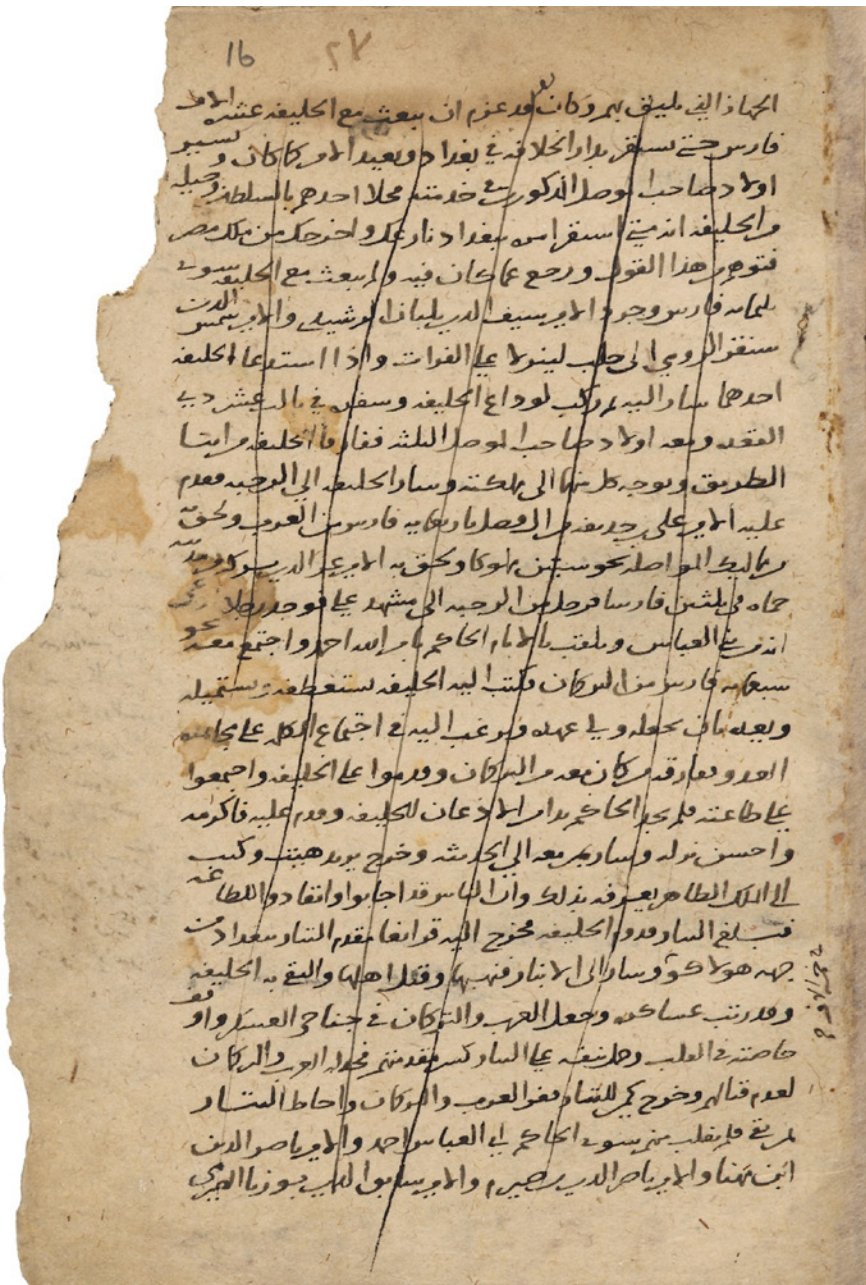 16 ٢٧
الجهاز الذي يليق بهم وكان قد عزم ان يبعث مع الخليفه عشره الاف
فارس حتى يستقر بدار الخلافه في بغداد ويعيد الامر كما كان وتسير
اولاد صاحب الموصل المذكورين في خدمته فخلا احدهم بالسلطان
من الخليفه انه متى استقر امره ببغداد نازعك واخرجك من ملك مصر
فتوهم هذا القول ورجع عما كان فيه ولم يبعث مع الخليفه سوى
ثلثمايه فارس وجرد الامير سيف الدين بلبان الرشيدي والامير شمس الدين
سنقر الرومي الى حلب لينزلا على الفرات واذا استدعا الخليفه
احدهما سار اليه ثم ركب لوداع الخليفه وسفره في ثالث عشر ذي
القعده ومعه اولاد صاحب الموصل الثلثه ففارقوا الخليفه من اثنا
الطريق وتوجه كل منها الى مملكته وسار الخليفه الى الرحبه فقدم
عليه الامير علي بن حديثه من ال فضل باربعمايه فارس من العرب ولحق
مماليك المواصله نحو ستين مملوكا ولحق به الامير عز الدين بركه من
حماه في ثلثين فارسا فرحل من الرحبه الى مشهد علي فوجد رجلا
انه من بني العباس ويلقب بالامام الحاكم بامر الله احمد واجتمع معه نحو
سبعمايه فارس من التركمان فكتب اليه الخليفه يستعطفه ويستميله
ويعده بان يجعله ولي عهده ويرغب اليه في اجتماع الكلمه على
العدو ففارقه من كان معه من التركمان وقدموا على الخليفه واجمعوا
على طاعته فلم يجد الحاكم بدا من الاذعان للخليفه وقدم عليه فاكرمه
واحسن نزله وسار بمن معه الى الحديثه وخرج يريد هيت وكتب
الى الملك الظاهر يعرفه بذلك وان الناس قد اجابوا وانقادوا للطاعه
فبلغ التتار قدوم الخليفه فخرج اليه قرابغا مقدم التتار ببغداد من
جهه هولاكو وسار الى الانبار فنهبها وقتل اهلها والتقى به الخليفه
وقد رتب عساكره وجعل العرب والتركمان في جناحي العسكر
خاصته في القلب وحمل بنفسه على التتار كسر مقدمتهم فخذله العرب والتركمان
لعدم قتالهم وخرج كمين للتتار ففر العرب والتركمان واحاط التتار
بمن بقي فلم يفلت منهم سوى الحاكم ابي العباس احمد والامير ناصر الدين
ابن مهنا والامير ناصر الدين بن صيرم والامير سابق الدين بوزبا الصيرفي